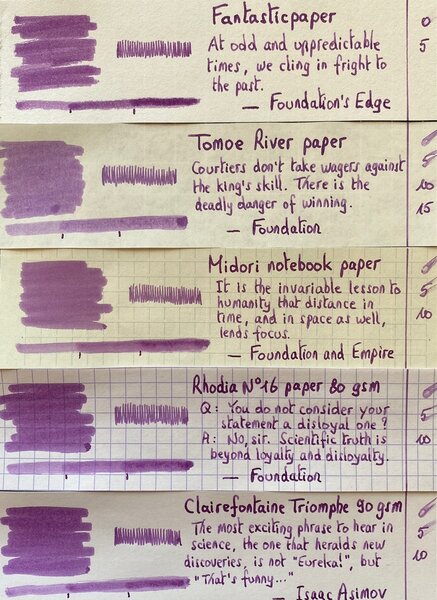 Fantasticpaper
At odd and unpredictable
times, we cling in fright to
the past.
— Foundation's Edge
0
5
Tomoe River paper
Courtiers don't take wagers against
the king's skill. There is the
deadly danger of winning.
— Foundation
10
15
Midori notebook paper
It is the invariable lesson to
humanity that distance in
time, and in space as well,
lends focus.
— Foundation and Empire
5
10
Rhodia N°16 paper 80 gsm
Q: You do not consider your
statement a disloyal one?
A: No, sir. Scientific truth is
beyond loyalty and disloyalty.
— Foundation
5
10
Clairefontaine Triomphe 90 gsm
The most exciting phrase to hear in
science, the one that heralds new
discoveries, is not "Eureka!", but
"That's funny..."
— Isaac Asimov
5
10